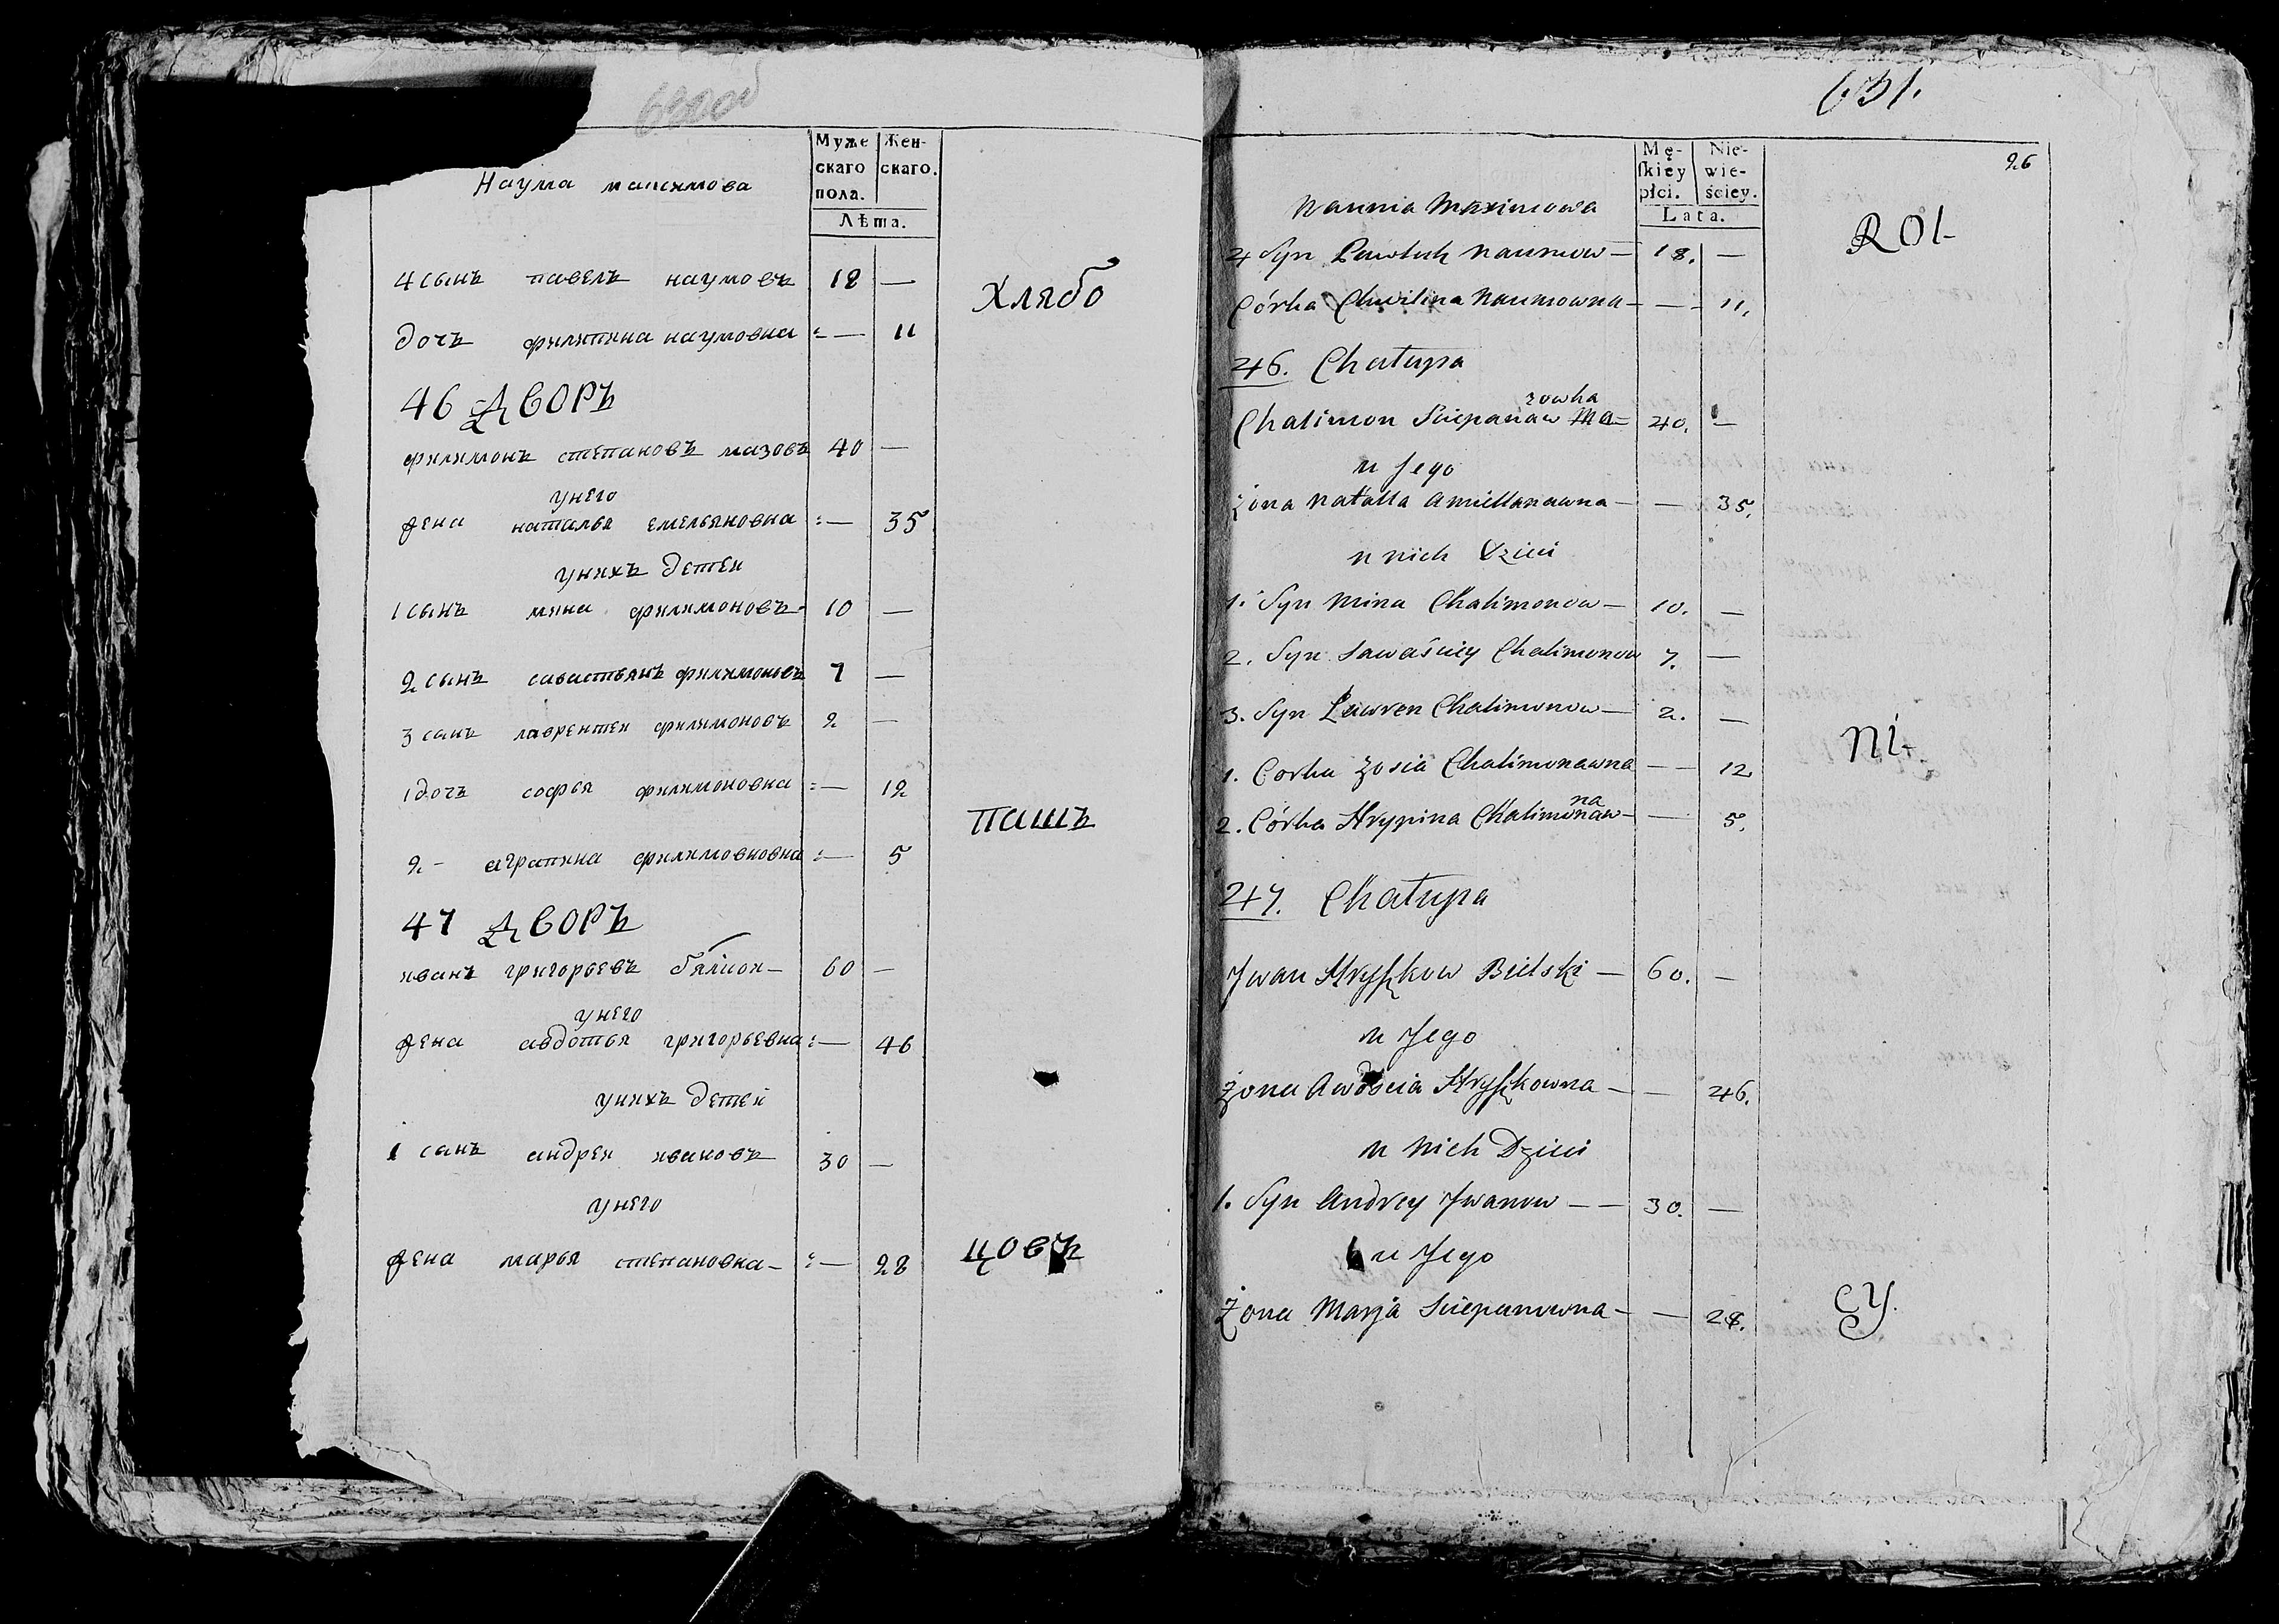 Муже
скаго
пола.
Жен-
скаго.
Лѣта.
Наума максимова
4 сынъ павелъ наумовъ 18 —
дочъ филипина наумовна :— 11
46 ДВОРЪ
филимонъ степановъ мазовъ 40 —
унего
жена наталья емельяновна :— 35
унихъ детеи
1 сынъ мина филимоновъ 10 —
2 сынъ савастьянъ филимоновъ 7 —
3 санъ лаврентеи филимоновъ 2 —
1 дочъ софья филимоновна :— 12
2 – аграпина филимовновна :— 5
47 ДВОРЪ
иванъ григорьевъ 60 —
унего
жена авдотья григорьевна :— 46
унихъ детей
1 санъ андреи ивановъ 30 —
унего
жена марья степановна – :— 28
Хлябо
пашъ
цовъ
631.
26
Mę-
ſkiey
płci.
Nie-
wie-
ściey.
Lata.
Naumia Maximowa
4 Syn Pawluk Naumow — 18. —
Córka Chwilina Naumowna — — 11.
46. Chałupa
zowka
Chalimon Sciepanaw Ma- 40. —
u Jego
Żona Natalla Amiellanawna — — 35.
u nich Dzieci
1. Syn Mina Chalimonow — 10. —
2. Syn Sawaściey Chalimonow 7. —
3. Syn Ławren Chalimonow — 2. —
1. Corka Zosia Chalimonawna — 12
na
2. Córka Hrypina Chalimonaw- — 5.
47. Chałupa
Jwan Hryſzkow Bielski — 60. —
u Jego
Żona Awdocia Hryſzkowna — — 46.
u Nich Dzieci
1. Syn Andrey Jwanow — — 30. —
u Jego
Żona Marja Sciepanowna — — 28.
ROl-
Ni-
cy.